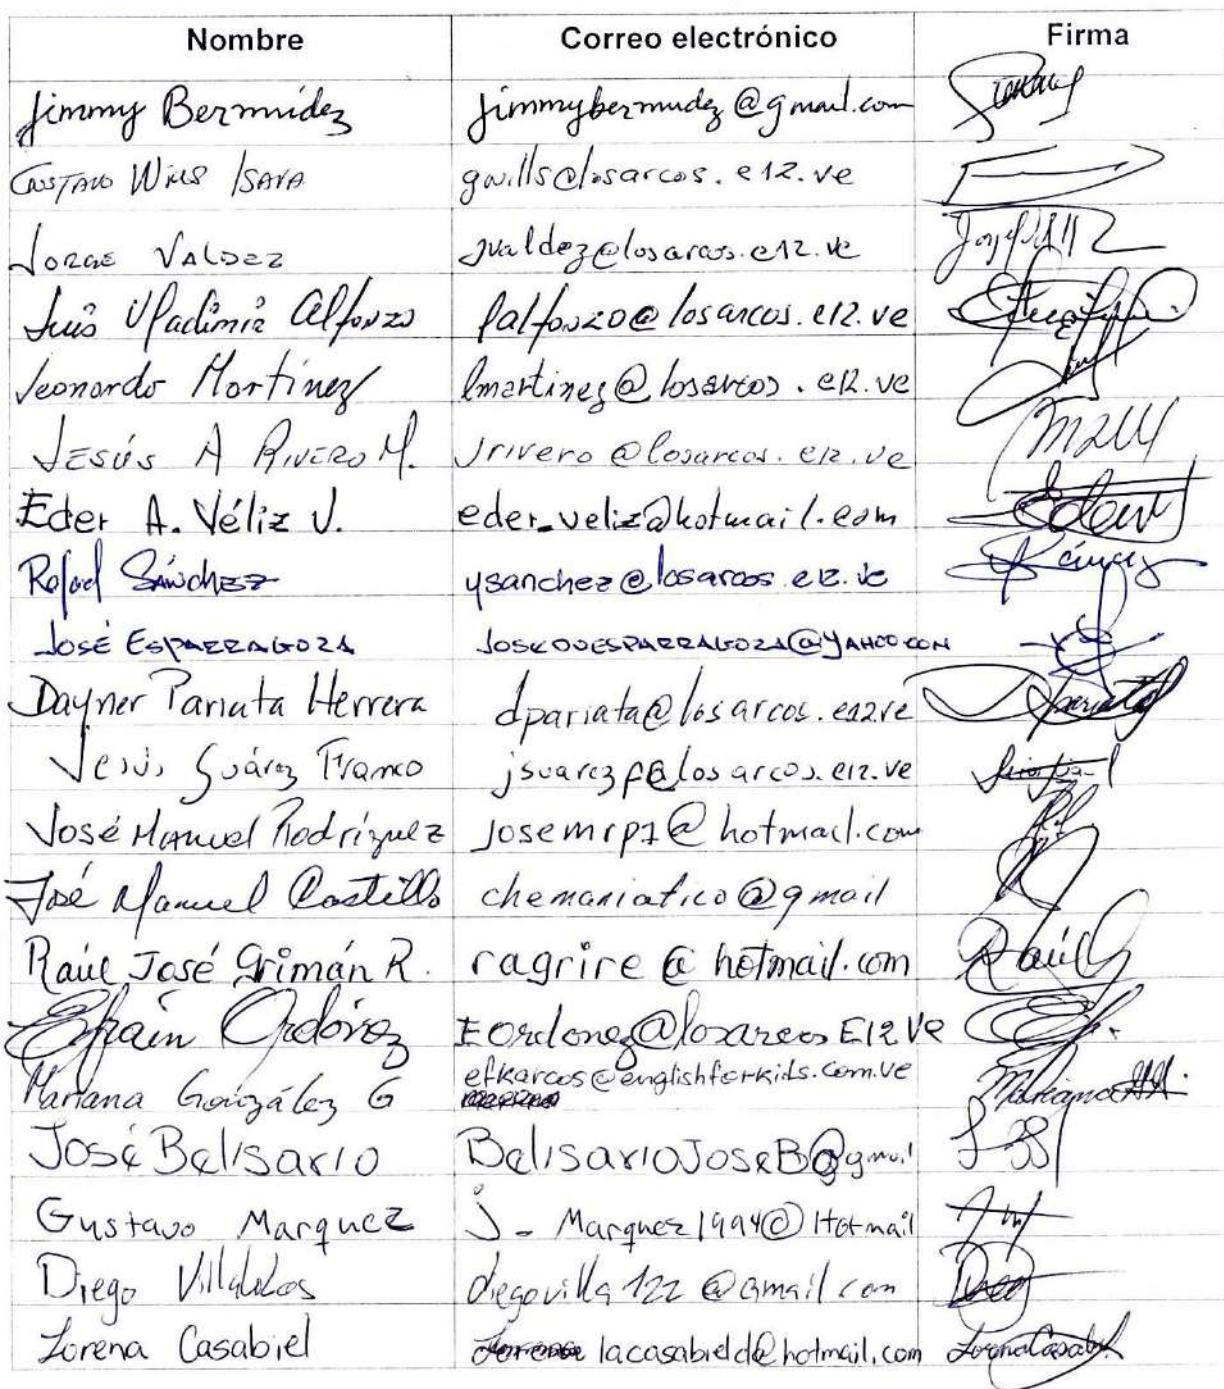 Nombre Correo electrónico Firma
Jimmy Bermúdez jimmybermudez@gmail.com
Gustavo Wills Isava gwills@losarcos.e12.ve
Jorge Valdez jvaldez@losarcos.e12.ve
Luis Vladimir Alfonzo lalfonzo@losarcos.e12.ve
Leonardo Martínez lmartinez@losarcos.e12.ve
Jesús A Rivero M. jrivero@losarcos.e12.ve
Eder A. Véliz V. eder_veliz@hotmail.com
Rafael Sánchez ysanchez@losarcos.e12.ve
José Esparragoza
Dayner Pariata Herrera dpariata@losarcos.e12ve
Jesús Suárez Franco jsuarezf@losarcos.e12.ve
José Manuel Rodríguez josemrp1@hotmail.com
José Manuel Castillo chemaniatico@gmail
Raúl José Grimán R. ragrire@hotmail.com Raúl
Efraín Ordóñez Eordonez@losarcos E12 Ve
efkarcos@englishforkids.com.ve
Mariana González G
José Belisario BelisarioJoseB@gmail
Gustavo Marquez J_Marquez1994@Hotmail
Diego Villalobos diegovilla122@Gmail com
Lorena Casabiel lacasabield@hotmail.com Lorena Casabiel